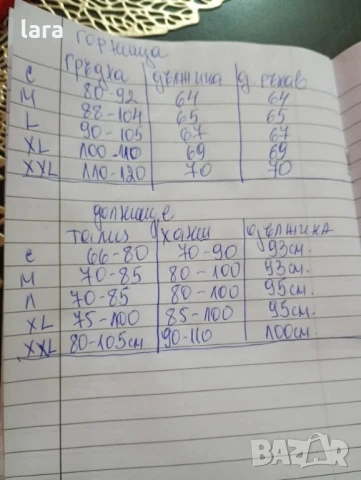 lara
горница
гръдка дължина д. ръкав
С 80-92 64 64
М 88-104 65 65
L 90-105 67 67
XL 100-110 69 69
XXL 110-120 70 70
долнище
талия ханш дължина
С 66-80 70-90 93см.
М 70-85 80-100 93см.
Л 70-85 80-100 95см.
XL 75-100 85-100 95см.
XXL 80-105см 90-110 100см.
BAZAR